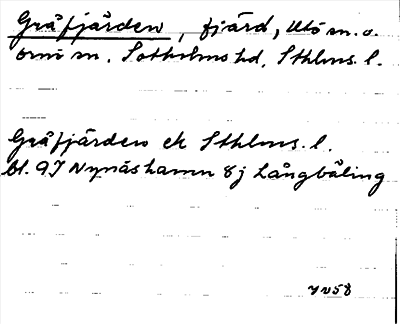 Gråfjärden, fjärd, Utö sn. o.
Ornö sn. Sotholms hd, Sthlms. l.
Gråfjärden ek Sthlms. l.
bl. 9I Nynäshamn 8j Långbäling